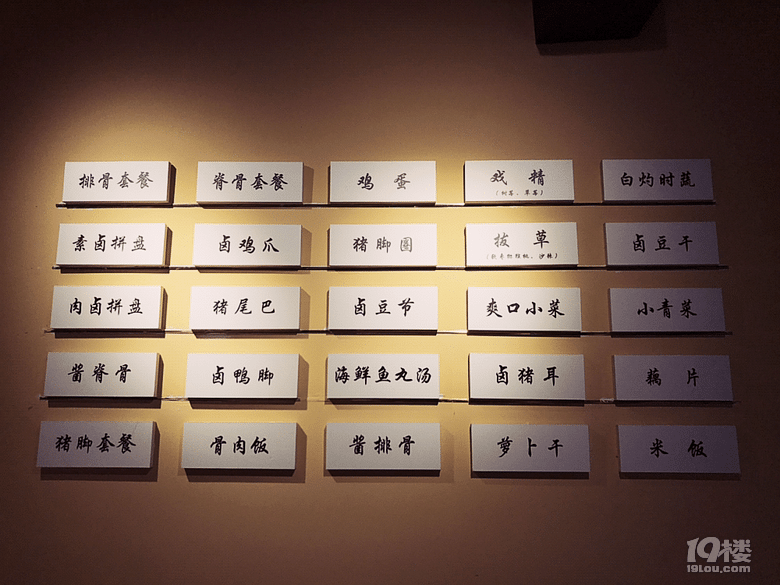 排骨套餐 脊骨套餐 鸡蛋 戏精 白灼时蔬
(树莓、草莓)
素卤拼盘 卤鸡爪 猪脚圆 拔草 卤豆干
(新奇弥猴桃、沙棘)
肉卤拼盘 猪尾巴 卤豆节 爽口小菜 小青菜
酱脊骨 卤鸭脚 海鲜鱼丸汤 卤猪耳 藕片
猪脚套餐 骨肉饭 酱排骨 萝卜干 米饭
19楼
19lou.com